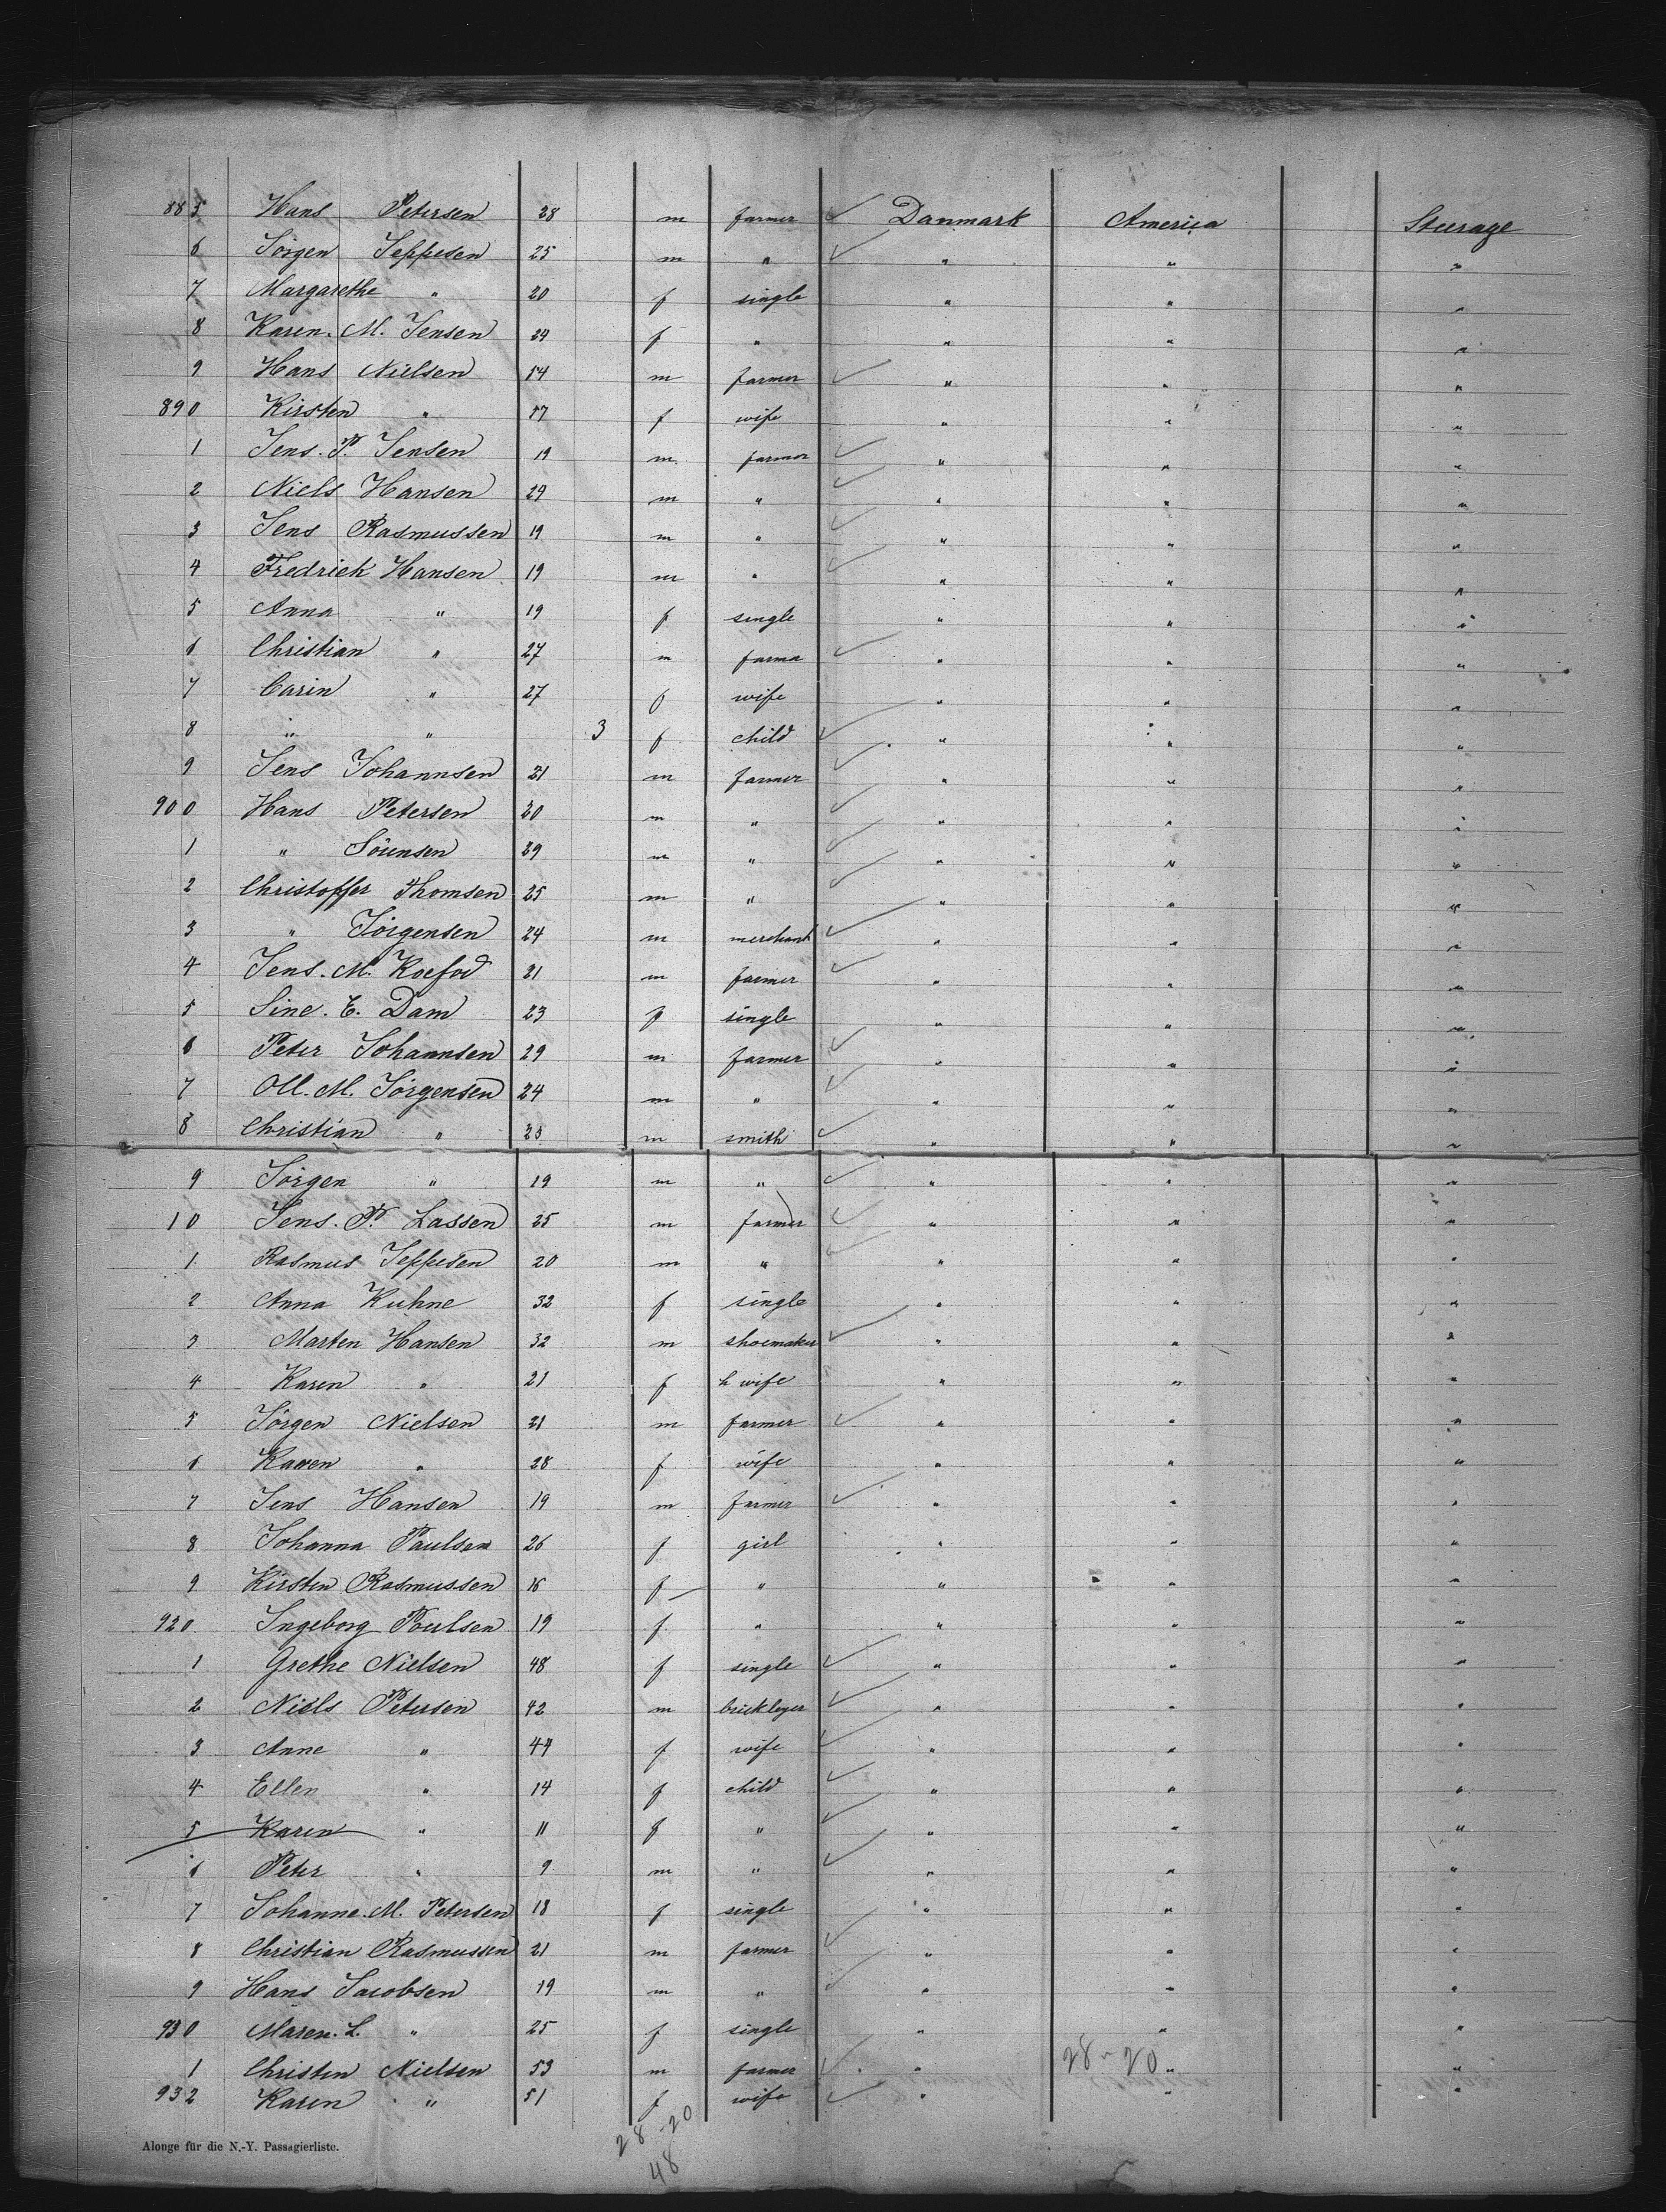 885 Hans Petersen 28 m farmer ✓ Danmark America Steerage
6 Jörgen Jeppesen 25 m " ✓ " " "
7 Margarethe " 20 f single " " "
8 Karen. M. Jensen 24 f " " " "
9 Hans Nielsen 54 m farmer ✓ " " "
890 Kirsten " 57 f wife " " "
1 Jens. P. Jensen 19 m farmer ✓ " " "
2 Niels Hansen 24 m " ✓ " " "
3 Jens Rasmussen 19 m " ✓ " " "
4 Fredrick Hansen 19 m " ✓ " " "
5 Anna " 19 f single " " "
6 Christian " 27 m farma ✓ " " "
7 Carin " 27 f wife " " "
8 " " 3 f child ✓ " " "
9 Jens Johannsen 21 m farmer ✓ " " "
900 Hans Petersen 20 m " ✓ " " "
1 " Sörensen 29 m " ✓ " " "
2 Christoffer Thomsen 25 m " ✓ " " "
3 " Jörgensen 24 m merchant ✓ " " "
4 Jens. M. Koefod 21 m farmer ✓ " " "
5 Sine. E. Dam 23 f single " " "
6 Peter Johannsen 29 m farmer ✓ " " "
7 Oll. M. Jörgensen 24 m " ✓ " " "
8 Christian " 23 m smith ✓ " " "
9 Jörgen " 19 m " ✓ " " "
10 Jens. P. Lassen 25 m farmer ✓ " " "
1 Rasmus Jeppesen 20 m " ✓ " " "
2 Anna Kuhne 32 f single " " "
3 Marten Hansen 32 m shoemaker ✓ " " "
4 Karen " 21 f h wife " " "
5 Jörgen Nielsen 21 m farmer ✓ " " "
6 Karen " 28 f wife " " "
7 Jens Hansen 19 m farmer ✓ " " "
8 Johanna Paulsen 26 f girl " " "
9 Kirsten Rasmussen 16 f " " " "
920 Ingeborg Poulsen 19 f " " " "
1 Grethe Nielsen 48 f single ✓ " " "
2 Niels Petersen 42 m brickleyer ✓ " " "
3 Anne " 44 f wife ✓ " " "
4 Ellen " 14 f child ✓ " " "
5 Karen " 11 f " ✓ " " "
6 Peter " 9 m " ✓ " " "
7 Johanne. M. Petersen 18 f single " " "
8 Christian Rasmussen 21 m farmer ✓ " " "
9 Hans Jacobsen 19 m " ✓ " " "
930 Maren. L. " 25 f single " " "
1 Christen Nielsen 53 m farmer ✓ " 28-20 " "
932 Karen " 51 f wife ✓ " " "
28-20
48
Alonge für die N.-Y. Passagierliste.